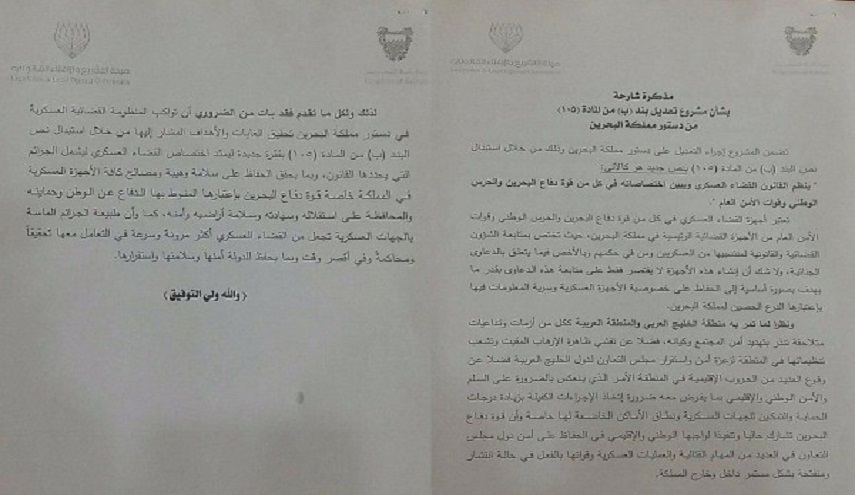 هيئة التشريع والإفتاء القانوني
مذكرة شارحة
بشأن مشروع تعديل بند (ب) من المادة (١٠٥)
من دستور مملكة البحرين
تضمن المشروع إجراء التعديل على دستور مملكة البحرين وذلك من خلال استبدال
نص البند (ب) من المادة (١٠٥) بنص جديد هو كالآتي:
" ينظم القانون القضاء العسكري ويبين اختصاصاته في كل من قوة دفاع البحرين والحرس
الوطني وقوات الأمن العام ".
تعتبر أجهزة القضاء العسكري في كل من قوة دفاع البحرين والحرس الوطني وقوات
الأمن العام من الأجهزة القضائية الرئيسية في مملكة البحرين، حيث تختص بمتابعة الشؤون
القضائية والقانونية لمنتسبيها من العسكريين ومن في حكمهم وبالأخص فيما يتعلق بالدعاوى
الجنائية، ولا شك أن إنشاء هذه الأجهزة لا يقتصر فقط على متابعة هذه الدعاوى بقدر ما
يهدف بصورة أساسية إلى الحفاظ على خصوصية الأجهزة العسكرية وسرية المعلومات فيها
بإعتبارها الدرع الحصين لمملكة البحرين.
ونظرا لما تمر به منطقة الخليج العربي والمنطقة العربية ككل من أزمات وتداعيات
متلاحقة تنذر بتهديد أمن المجتمع وكيانه، فضلا عن تفشي ظاهرة الإرهاب المقيت وتشعب
تنظيماتها في المنطقة لزعزة أمن واستقرار مجلس التعاون لدول الخليج العربية فضلا عن
وقوع العديد من الحروب الإقليمية في المنطقة الأمر الذي ينعكس بالضرورة على السلم
والأمن الوطني والإقليمي بما يفرض معه ضرورة إتخاذ الإجراءات الكفيلة بزيادة درجات
الحماية والتمكين للجهات العسكرية ونطاق الأماكن الخاضعة لها خاصة وأن قوة دفاع
البحرين تشارك حاليا وتنفيذا لواجبها الوطني والإقليمي في الحفاظ على أمن دول مجلس
التعاون في العديد من المهام القتالية والعمليات العسكرية وقواتها بالفعل في حالة انتشار
ومنفتحة بشكل مستمر داخل وخارج المملكة.
هيئة التشريع والإفتاء القانوني
لذلك ولكل ما تقدم فقد بات من الضروري أن تواكب المنظومة القضائية العسكرية
في دستور مملكة البحرين تحقيق الغايات والأهداف المشار إليها من خلال استبدال نص
البند (ب) من المادة (١٠٥) بفقرة جديدة ليمتد اختصاص القضاء العسكري ليشمل الجرائم
التي يحددها القانون، وبما يحقق الحفاظ على سلامة وهيبة ومصالح كافة الأجهزة العسكرية
في المملكة خاصة قوة دفاع البحرين بإعتبارها المنوط بها الدفاع عن الوطن وحمايته
والمحافظة على استقلاله وسيادته وسلامة أراضيه وأمنه، كما وأن طبيعة الجرائم الماسة
بالجهات العسكرية تجعل من القضاء العسكري أكثر مرونة وسرعة في التعامل معها تحقيقاً
ومحاكمة وفي أقصر وقت وبما يحفظ الدولة أمنها وسلامتها واستقرارها.
( والله ولي التوفيق )